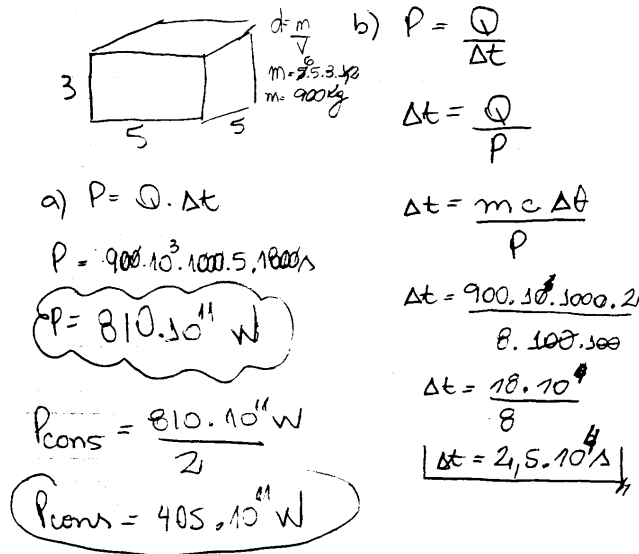 d = m/V
3
m = 6.5.3.12
m = 900 Kg
5
5
a) P = Q . Δt
P = 900.10³.1000.5.1800 s
P = 810.10¹¹ W
Pcons = 810.10¹¹ W / 2
Pcons = 405.10¹¹ W
b) P = Q/Δt
Δt = Q/P
Δt = m c Δθ / P
Δt = 900.10³.1000.2 / 8.100.100
Δt = 18.10⁴ / 8
Δt = 2,5.10⁴ s